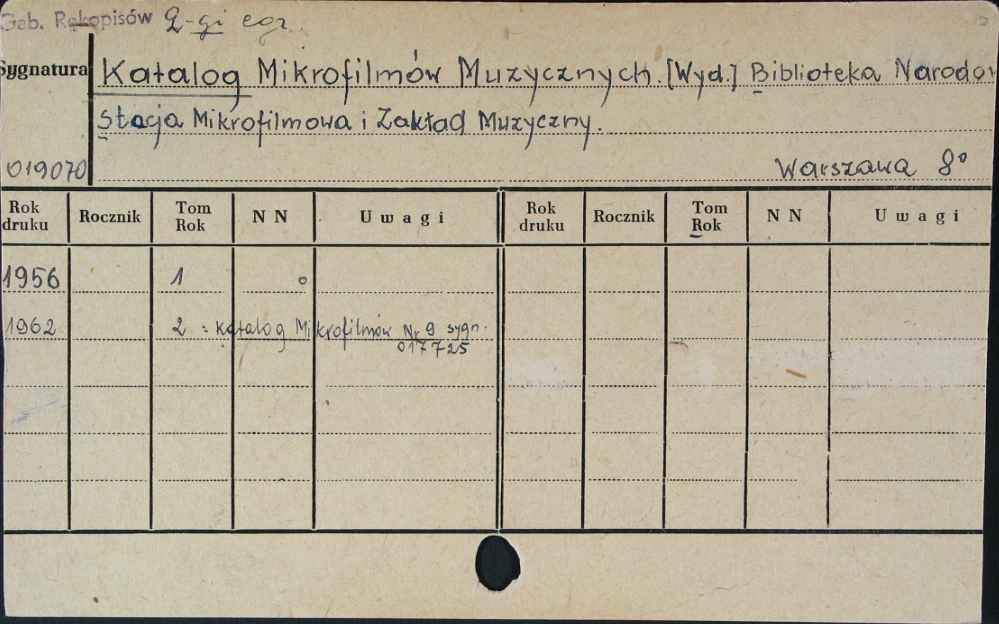 Gab. Rękopisów 2-gi egz.
Sygnatura Katalog Mikrofilmów Muzycznych. [Wyd.] Biblioteka Narodow
Stacja Mikrofilmowa i Zakład Muzyczny.
019070 Warszawa 8°
Rok druku Rocznik Tom Rok NN Uwagi Rok druku Rocznik Tom Rok NN Uwagi
1956 1 o
1962 2 = Katalog Mikrofilmów Nr 9 sygn.
017725